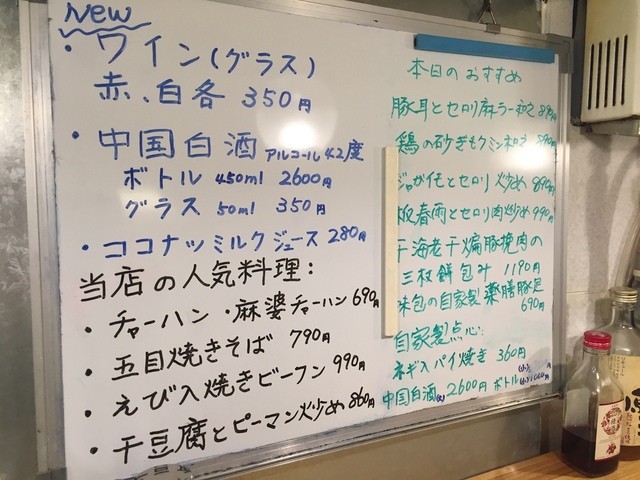 New
・ワイン(グラス)
赤、白各 350円
・中国白酒 アルコール42度
ボトル 450ml 2600円
グラス 50ml 350円
・ココナッツミルクジュース 280円
当店の人気料理:
・チャーハン・麻婆チャーハン 690円
・五目焼きそば 790円
・えび入焼きビーフン 990円
・干豆腐とピーマン炒め 860円
本日のおすすめ
豚耳とセロリ麻ラー和え
鶏の砂ぎもクミン和え
じゃが芋とセロリ炒め 890円
板春雨とセロリ肉炒め 990円
干海老干煸豚挽肉の
三枚餅包み 1190円
味包の自家製薬膳豚足
690円
自家製点心:
ネギ入パイ焼き 360円
中国白酒 2600円 ボトル